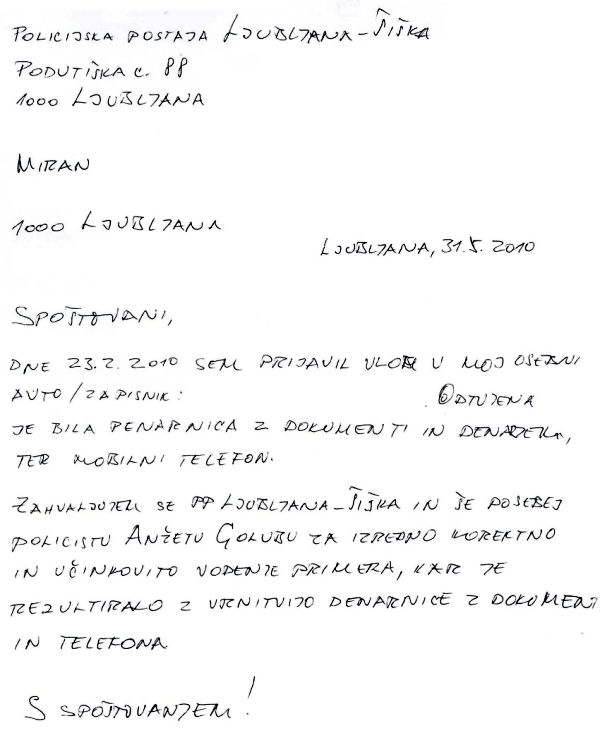 POLICIJSKA POSTAJA LJUBLJANA-ŠIŠKA
PODUTIŠKA C. 88
1000 LJUBLJANA
MIRAN
1000 LJUBLJANA
LJUBLJANA, 31.5. 2010
SPOŠTOVANI,
DNE 23.2.2010 SEM PRIJAVIL VLOM V MOJ OSEBNI
AVTO/ZAPISNIK: ODTUJENA
JE BILA DENARNICA Z DOKUMENTI IN DENARJEM,
TER MOBILNI TELEFON.
ZAHVALJUJEM SE PP LJUBLJANA-ŠIŠKA IN ŠE POSEBEJ
POLICISTU ANŽETU GOLOBU ZA IZREDNO KOREKTNO
IN UČINKOVITO VODENJE PRIMERA, KAR JE
REZULTIRALO Z VRNITVIJO DENARNICE Z DOKUMENTI
IN TELEFONA
S SPOŠTOVANJEM!